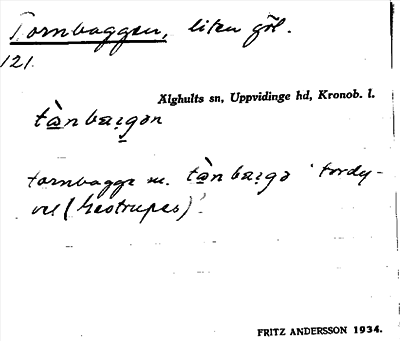 Tornbaggen, liten göl.
121.
Älghults sn, Uppvidinge hd, Kronob. l.
tànbaegən
tornbagge m. tànbaegə 'tordy-
vel (Geotrupes)'.
FRITZ ANDERSSON 1934.